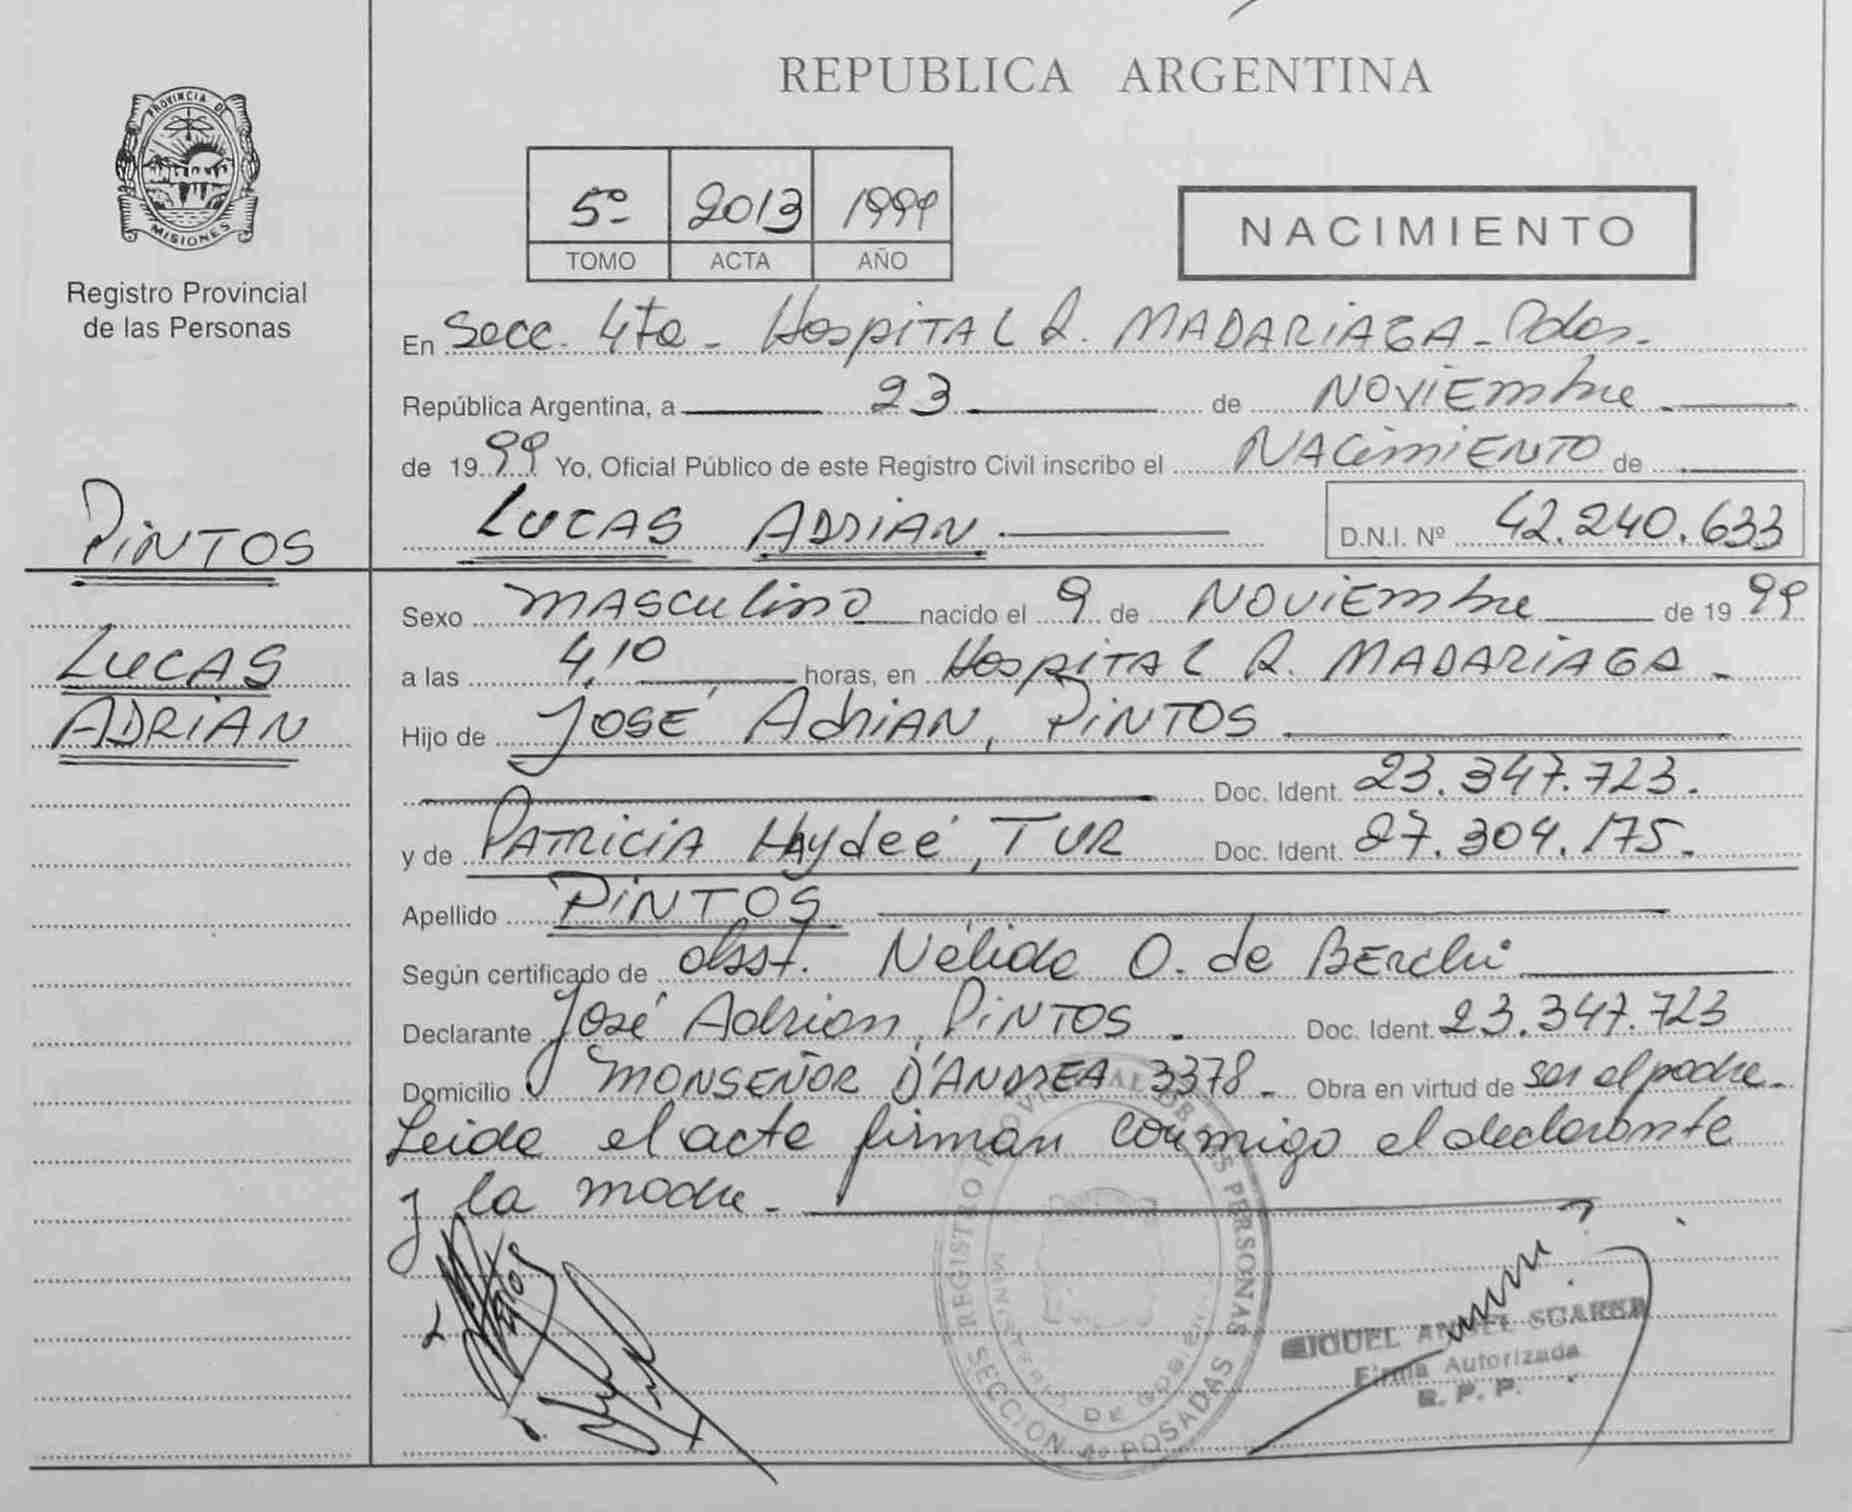 REPUBLICA ARGENTINA
PROVINCIA DE
MISIONES
Registro Provincial
de las Personas
5º 2013 1999
TOMO ACTA AÑO
NACIMIENTO
En Secc. 4ta - Hospital R. MADARIAGA - Pdas.
República Argentina, a 23 de Noviembre
de 1999 Yo, Oficial Público de este Registro Civil inscribo el NACimiENTO de
LUCAS ADRIAN D.N.I. Nº 42.240.633
PiNTOS
LUCAS
ADRIAN
Sexo masculino nacido el 9 de Noviembre de 1999
a las 4,10 horas, en Hospital R. MADARIAGA -
Hijo de José Adrian, PiNTOS
Doc. Ident. 23.347.723.
y de PATRICIA Haydeé, TUR Doc. Ident. 27.304.175.
Apellido PiNTOS
Según certificado de obst. Nélida O. de Berchi
Declarante José Adrian, PiNTOS. Doc. Ident. 23.347.723
Domicilio MONSEÑOR D'ANDREA 3378 - Obra en virtud de ser el padre.
Leida el acta firman conmigo el declarante
y la madre.
REGISTRO PROVINCIAL DE LAS PERSONAS
MINISTERIO DE GOBIERNO
SECCION 4ª POSADAS
MIGUEL ANGEL SUAREZ
Firma Autorizada
R. P. P.